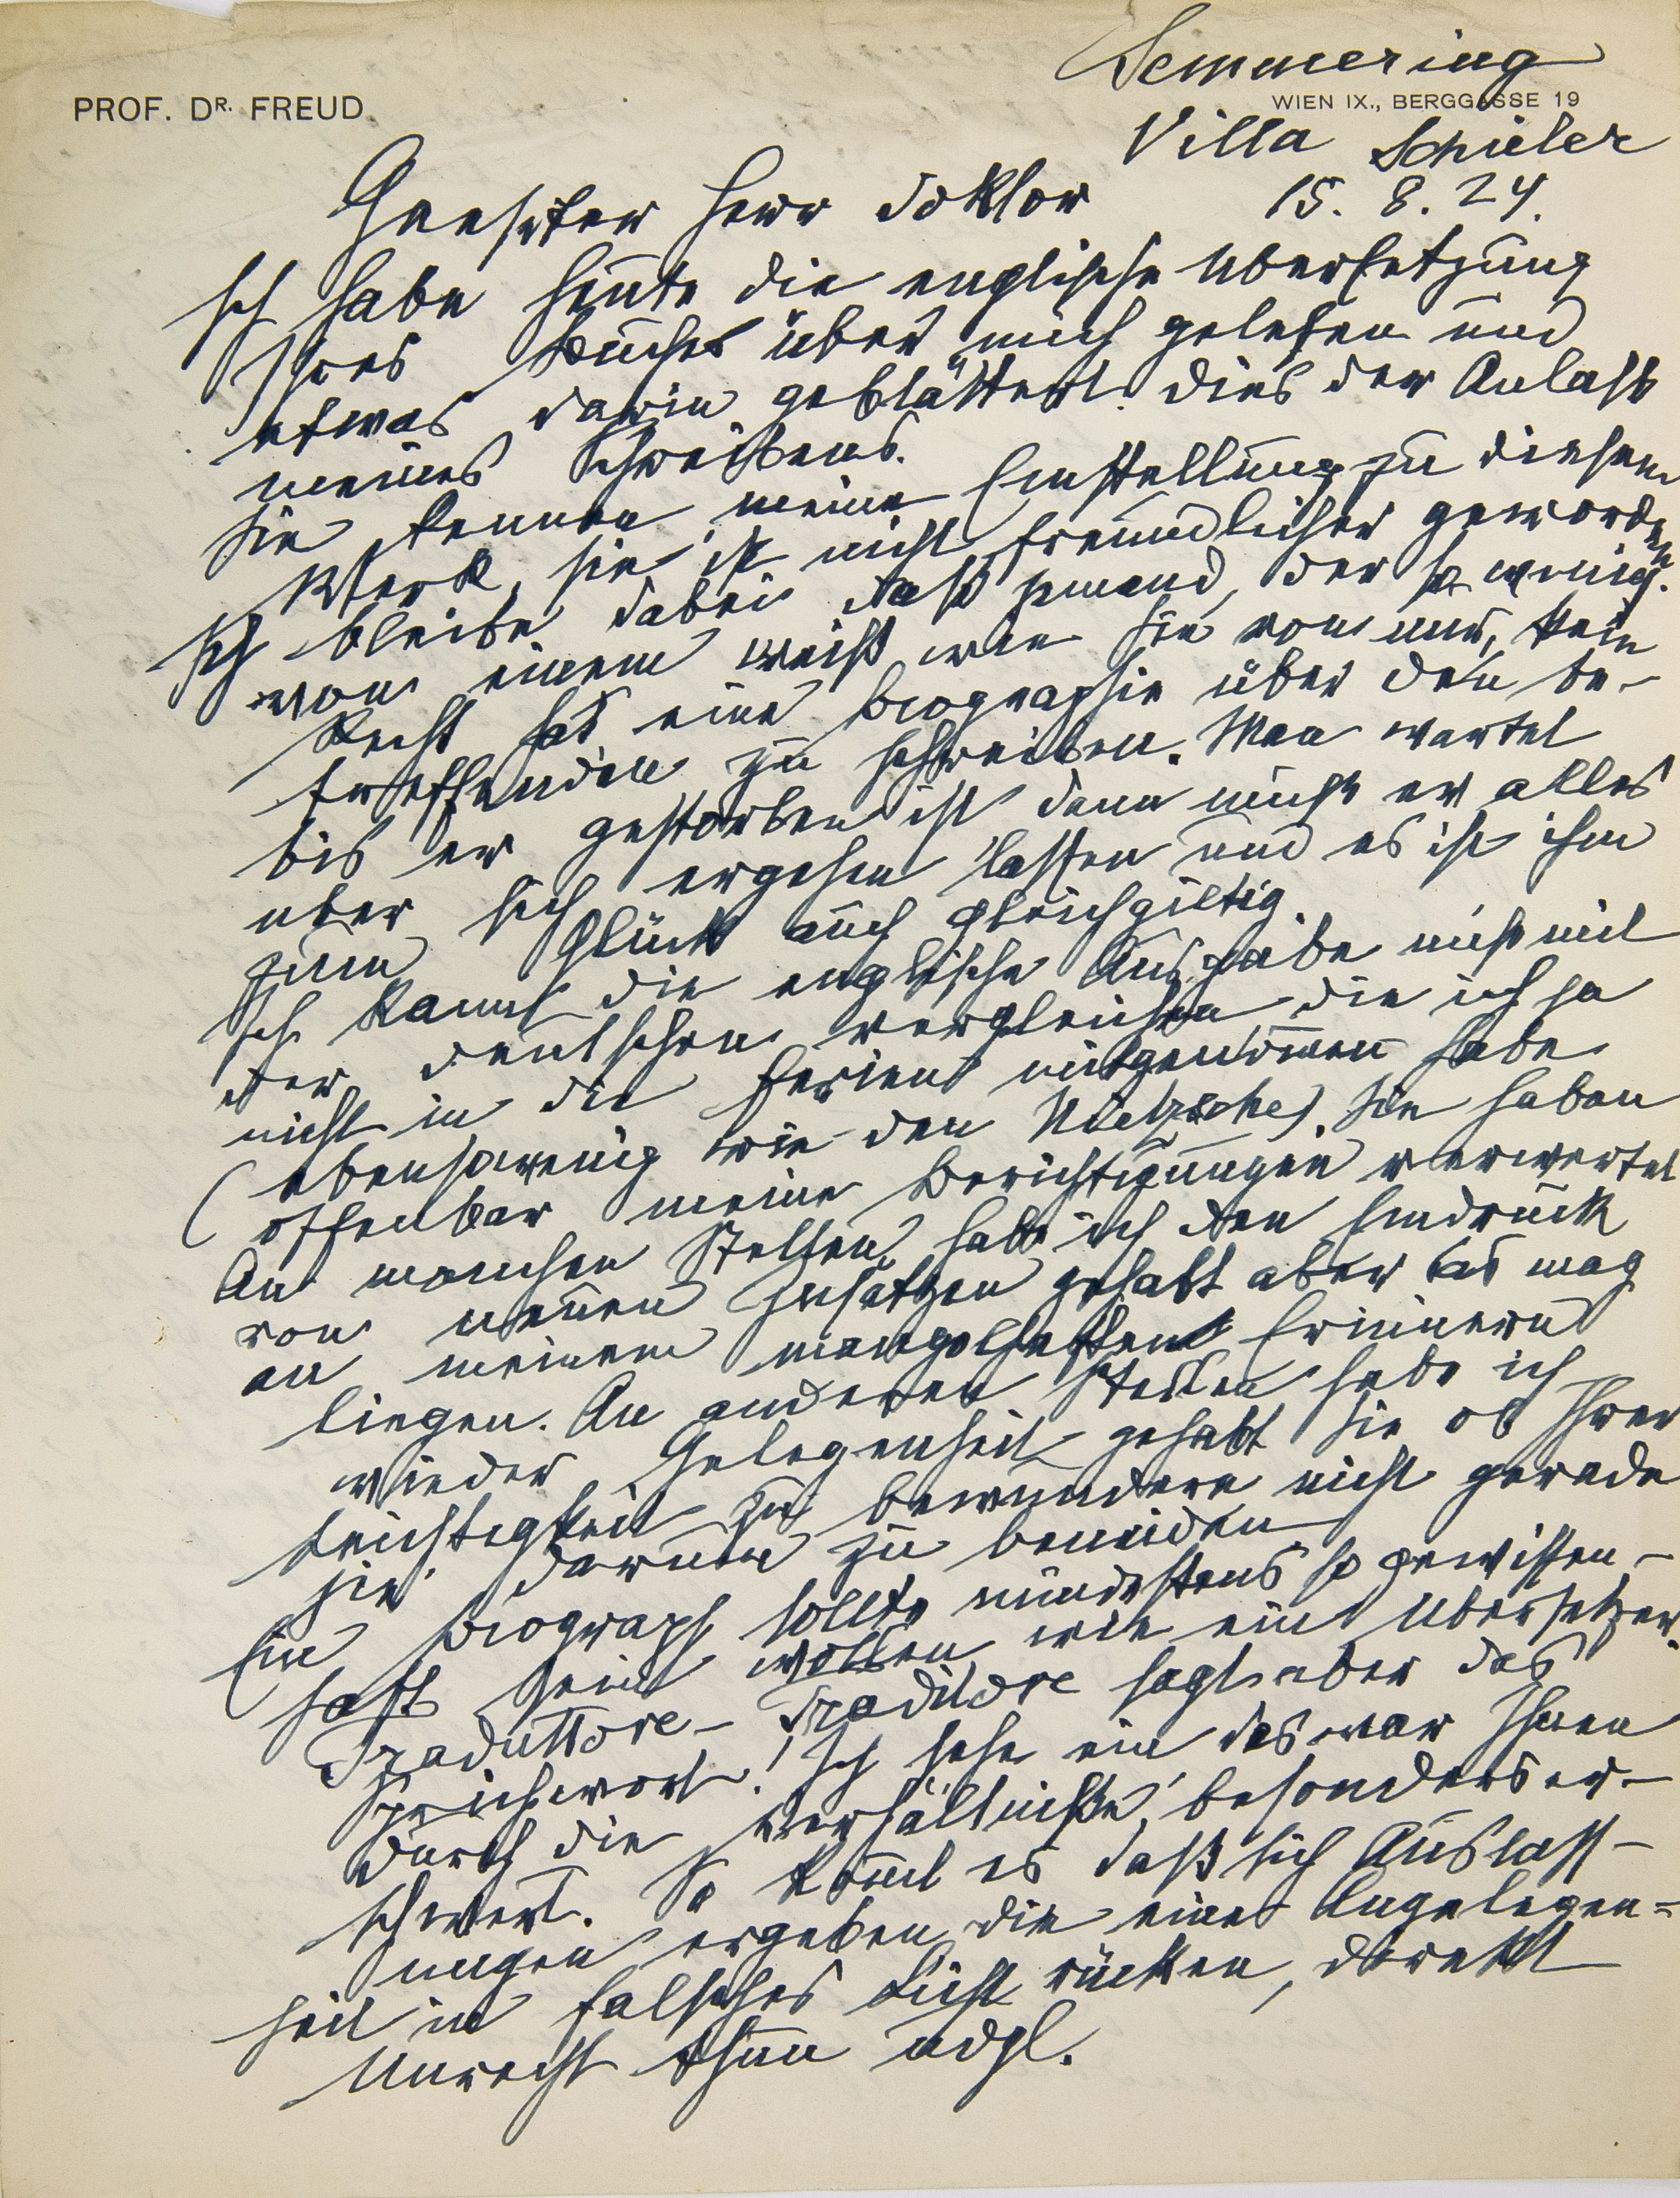 Semmering
PROF. DR. FREUD.
WIEN IX., BERGGASSE 19
Villa Schüler
Geehrter Herr Doktor 15. 8. 24.
Ich habe heute die englische Übersetzung
Ihres Buches über mich gelesen und
etwas darin geblättert. Dies der Anlaß
meines Schreibens.
Sie kennen meine Einstellung zu diesem
Werk, sie ist nicht freundlicher geworden.
Ich bleibe dabei daß jemand, der so wenig
von einem weiß wie Sie von mir, kein
Recht hat eine Biographie über den be-
treffenden zu schreiben. Man wartet
bis er gestorben ist dann muß er alles
über sich ergehen lassen und es ist ihm
zum Glück auch gleichgiltig.
Ich kann die englische Ausgabe nicht mit
der deutschen vergleichen die ich ja
nicht in die Ferien mitgenommen habe
(ebensowenig wie den Nietzsche). Sie haben
offenbar meine Berichtigungen verwertet
An manchen Stellen habe ich den Eindruck
von neuen Zusätzen gehabt aber das mag
an meinem mangelhaften Erinnern
liegen. An anderen Stellen habe ich
wieder Gelegenheit gehabt Sie ob Ihrer
zu bewundern nicht gerade
Sie darum zu beneiden
Ein Biograph sollte mindestens so gewissen-
haft sein wollen wie ein Übersetzer.
Traduttore - Traditore sagt aber das
Sprichwort! Ich sehe ein das war Ihnen
durch die Verhältnisse besonders er-
schwert. So kommt es daß sich Auslass-
ungen ergeben die eine Angelegen=
heit in falsches Licht rücken, direkt
Unrecht thun udgl.